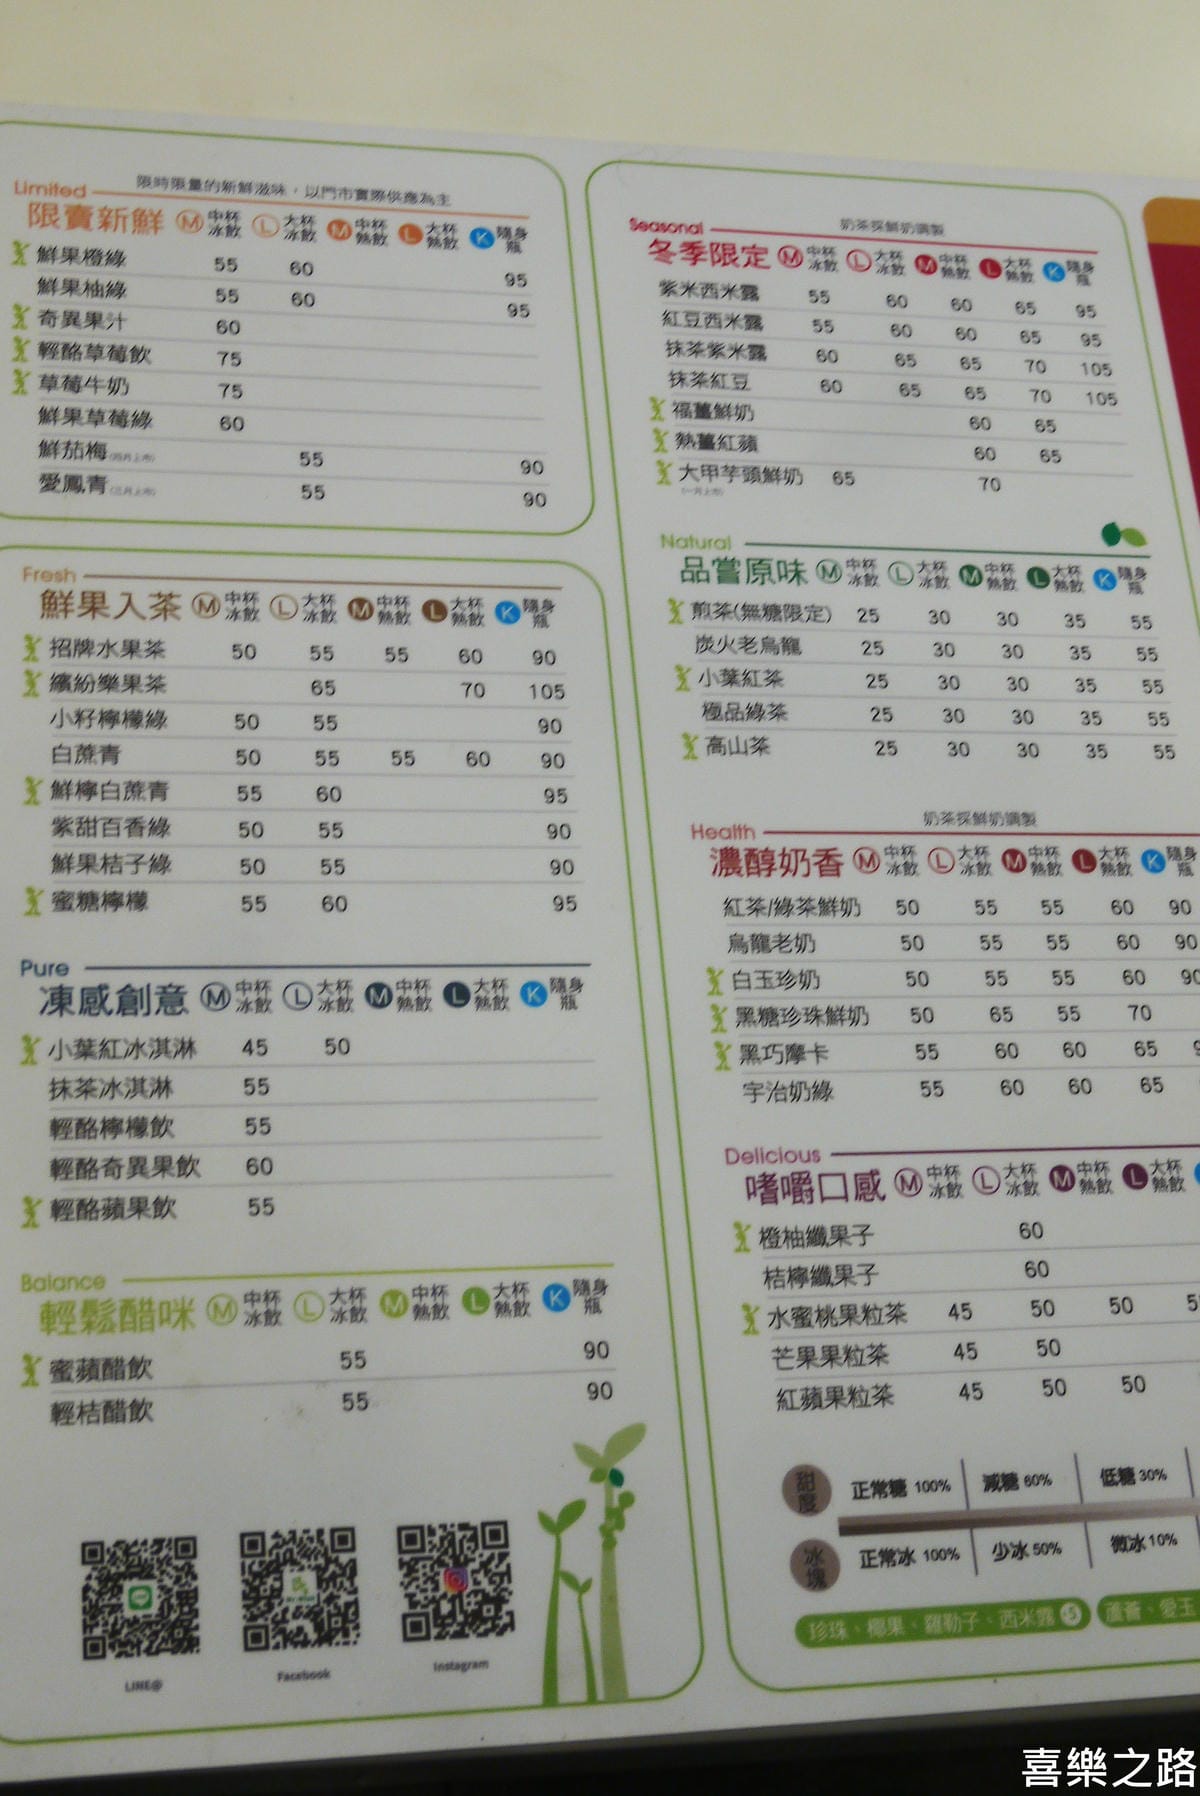 限時限量的新鮮滋味，以門市實際供應為主
Limited
限賣新鮮 M 中杯冰飲 L 大杯冰飲 M 中杯熱飲 L 大杯熱飲 K 隨身瓶
鮮果橙綠 55 60 95
鮮果柚綠 55 60 95
奇異果汁 60
輕酪草莓飲 75
草莓牛奶 75
鮮果草莓綠 60
鮮茄梅 55 90
愛鳳青 (三月上市) 55 90
Fresh
鮮果入茶 M 中杯冰飲 L 大杯冰飲 M 中杯熱飲 L 大杯熱飲 K 隨身瓶
招牌水果茶 50 55 55 60 90
繽紛樂果茶 65 70 105
小籽檸檬綠 50 55 90
白蔗青 50 55 55 60 90
鮮檸白蔗青 55 60 95
紫甜百香綠 50 55 90
鮮果桔子綠 50 55 90
蜜糖檸檬 55 60 95
Pure
凍感創意 M 中杯冰飲 L 大杯冰飲 M 中杯熱飲 L 大杯熱飲 K 隨身瓶
小葉紅冰淇淋 45 50
抹茶冰淇淋 55
輕酪檸檬飲 55
輕酪奇異果飲 60
輕酪蘋果飲 55
Balance
輕鬆醋咪 M 中杯冰飲 L 大杯冰飲 M 中杯熱飲 L 大杯熱飲 K 隨身瓶
蜜蘋醋飲 55 90
輕桔醋飲 55 90
LINE@
Facebook
Instagram
Seasonal
奶茶採鮮奶調製
冬季限定 M 中杯冰飲 L 大杯冰飲 M 中杯熱飲 L 大杯熱飲 K 隨身瓶
紫米西米露 55 60 60 65 95
紅豆西米露 55 60 60 65 95
抹茶紫米露 60 65 65 70 105
抹茶紅豆 60 65 65 70 105
福薑鮮奶 60 65
熱薑紅蘋 60 65
大甲芋頭鮮奶 65 70
(一月上市)
Natural
品嘗原味 M 中杯冰飲 L 大杯冰飲 M 中杯熱飲 L 大杯熱飲 K 隨身瓶
煎茶(無糖限定) 25 30 30 35 55
炭火老烏龍 25 30 30 35 55
小葉紅茶 25 30 30 35 55
極品綠茶 25 30 30 35 55
高山茶 25 30 30 35 55
奶茶採鮮奶調製
Health
濃醇奶香 M 中杯冰飲 L 大杯冰飲 M 中杯熱飲 L 大杯熱飲 K 隨身瓶
紅茶/綠茶鮮奶 50 55 55 60 90
烏龍老奶 50 55 55 60 90
白玉珍奶 50 55 55 60 90
黑糖珍珠鮮奶 50 65 55 70
黑巧摩卡 55 60 60 65
宇治奶綠 55 60 60 65
Delicious
嗜嚼口感 M 中杯冰飲 L 大杯冰飲 M 中杯熱飲 L 大杯熱飲
橙柚纖果子 60
桔檸纖果子 60
水蜜桃果粒茶 45 50 50
芒果果粒茶 45 50
紅蘋果粒茶 45 50 50
甜度 正常糖 100% 減糖 60% 低糖 30%
冰塊 正常冰 100% 少冰 50% 微冰 10%
珍珠、椰果、羅勒子、西米露 +5 蘆薈、愛玉
喜樂之路